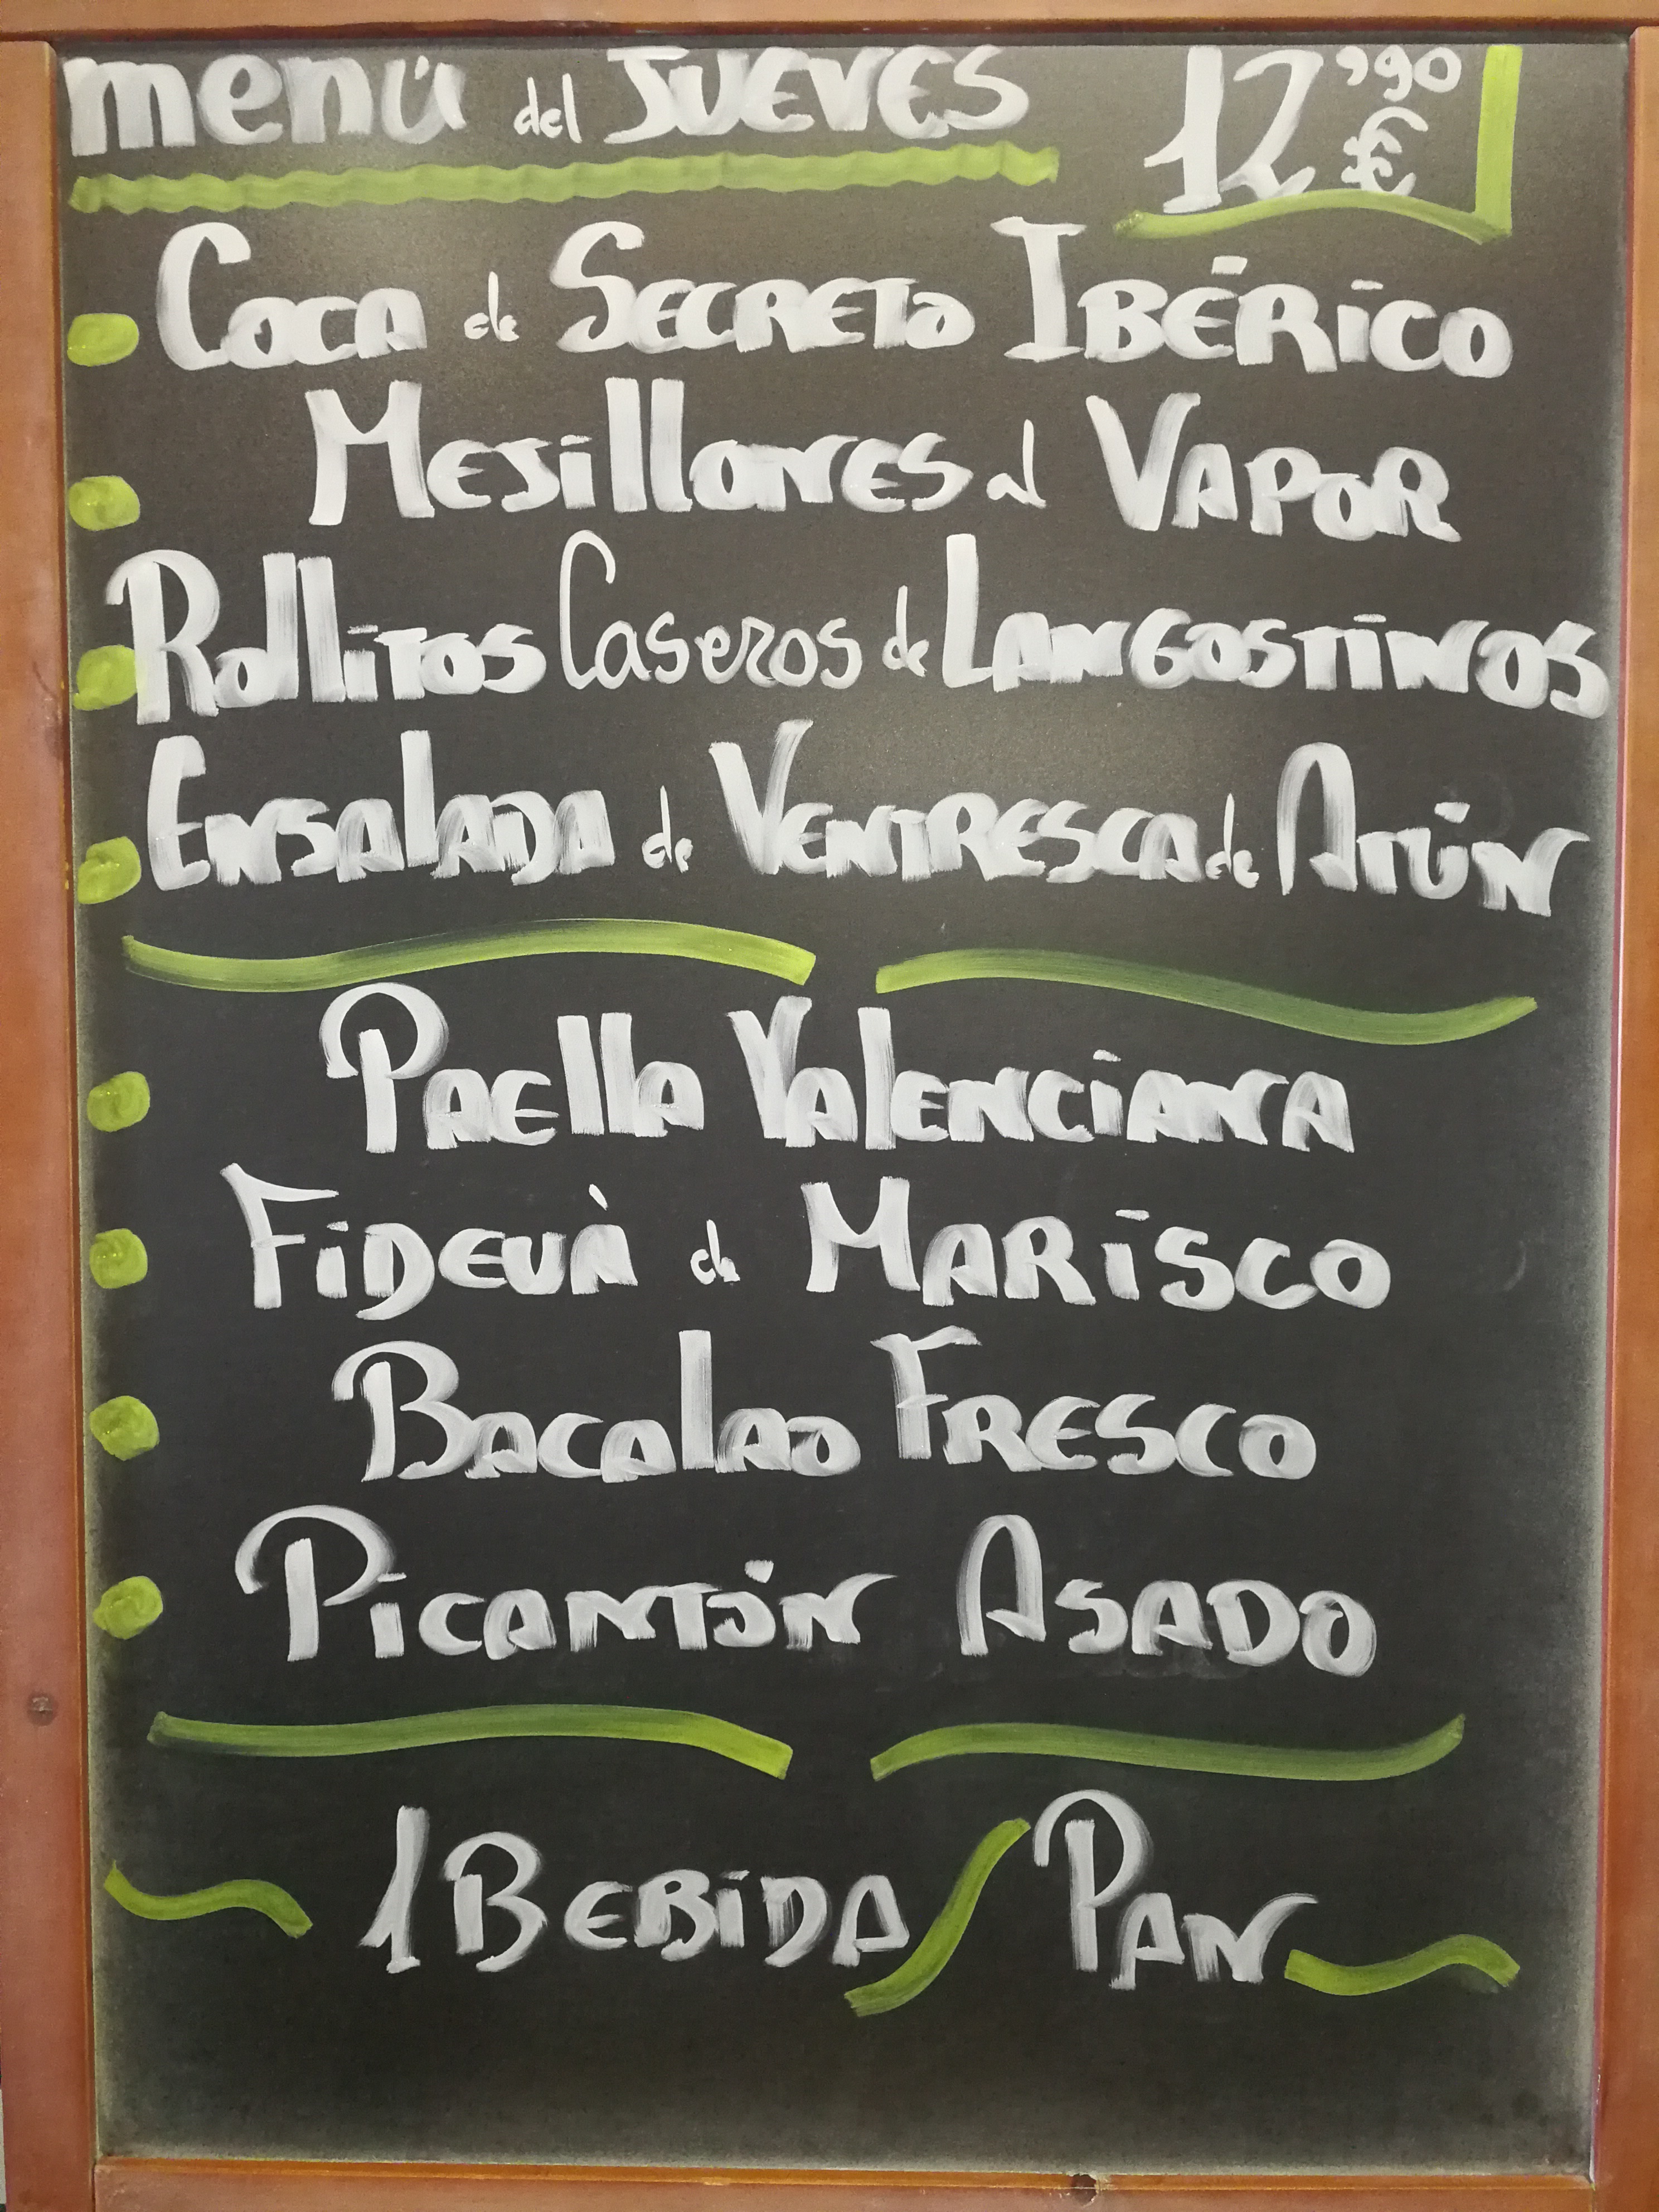 menú del JUEVES 12'90 €
COCA de SECRETO IBÉRICO
MEJillONES al VAPOR
RollITOS Caseros de LANGOSTINOS
ENSAlADA de VENTRESCA de ATÚN
PAElla VAlENCIANA
FIDEUÀ de MARISCO
BACAlAO FRESCO
PICANTÓN ASADO
1 BEBIDA / PAN